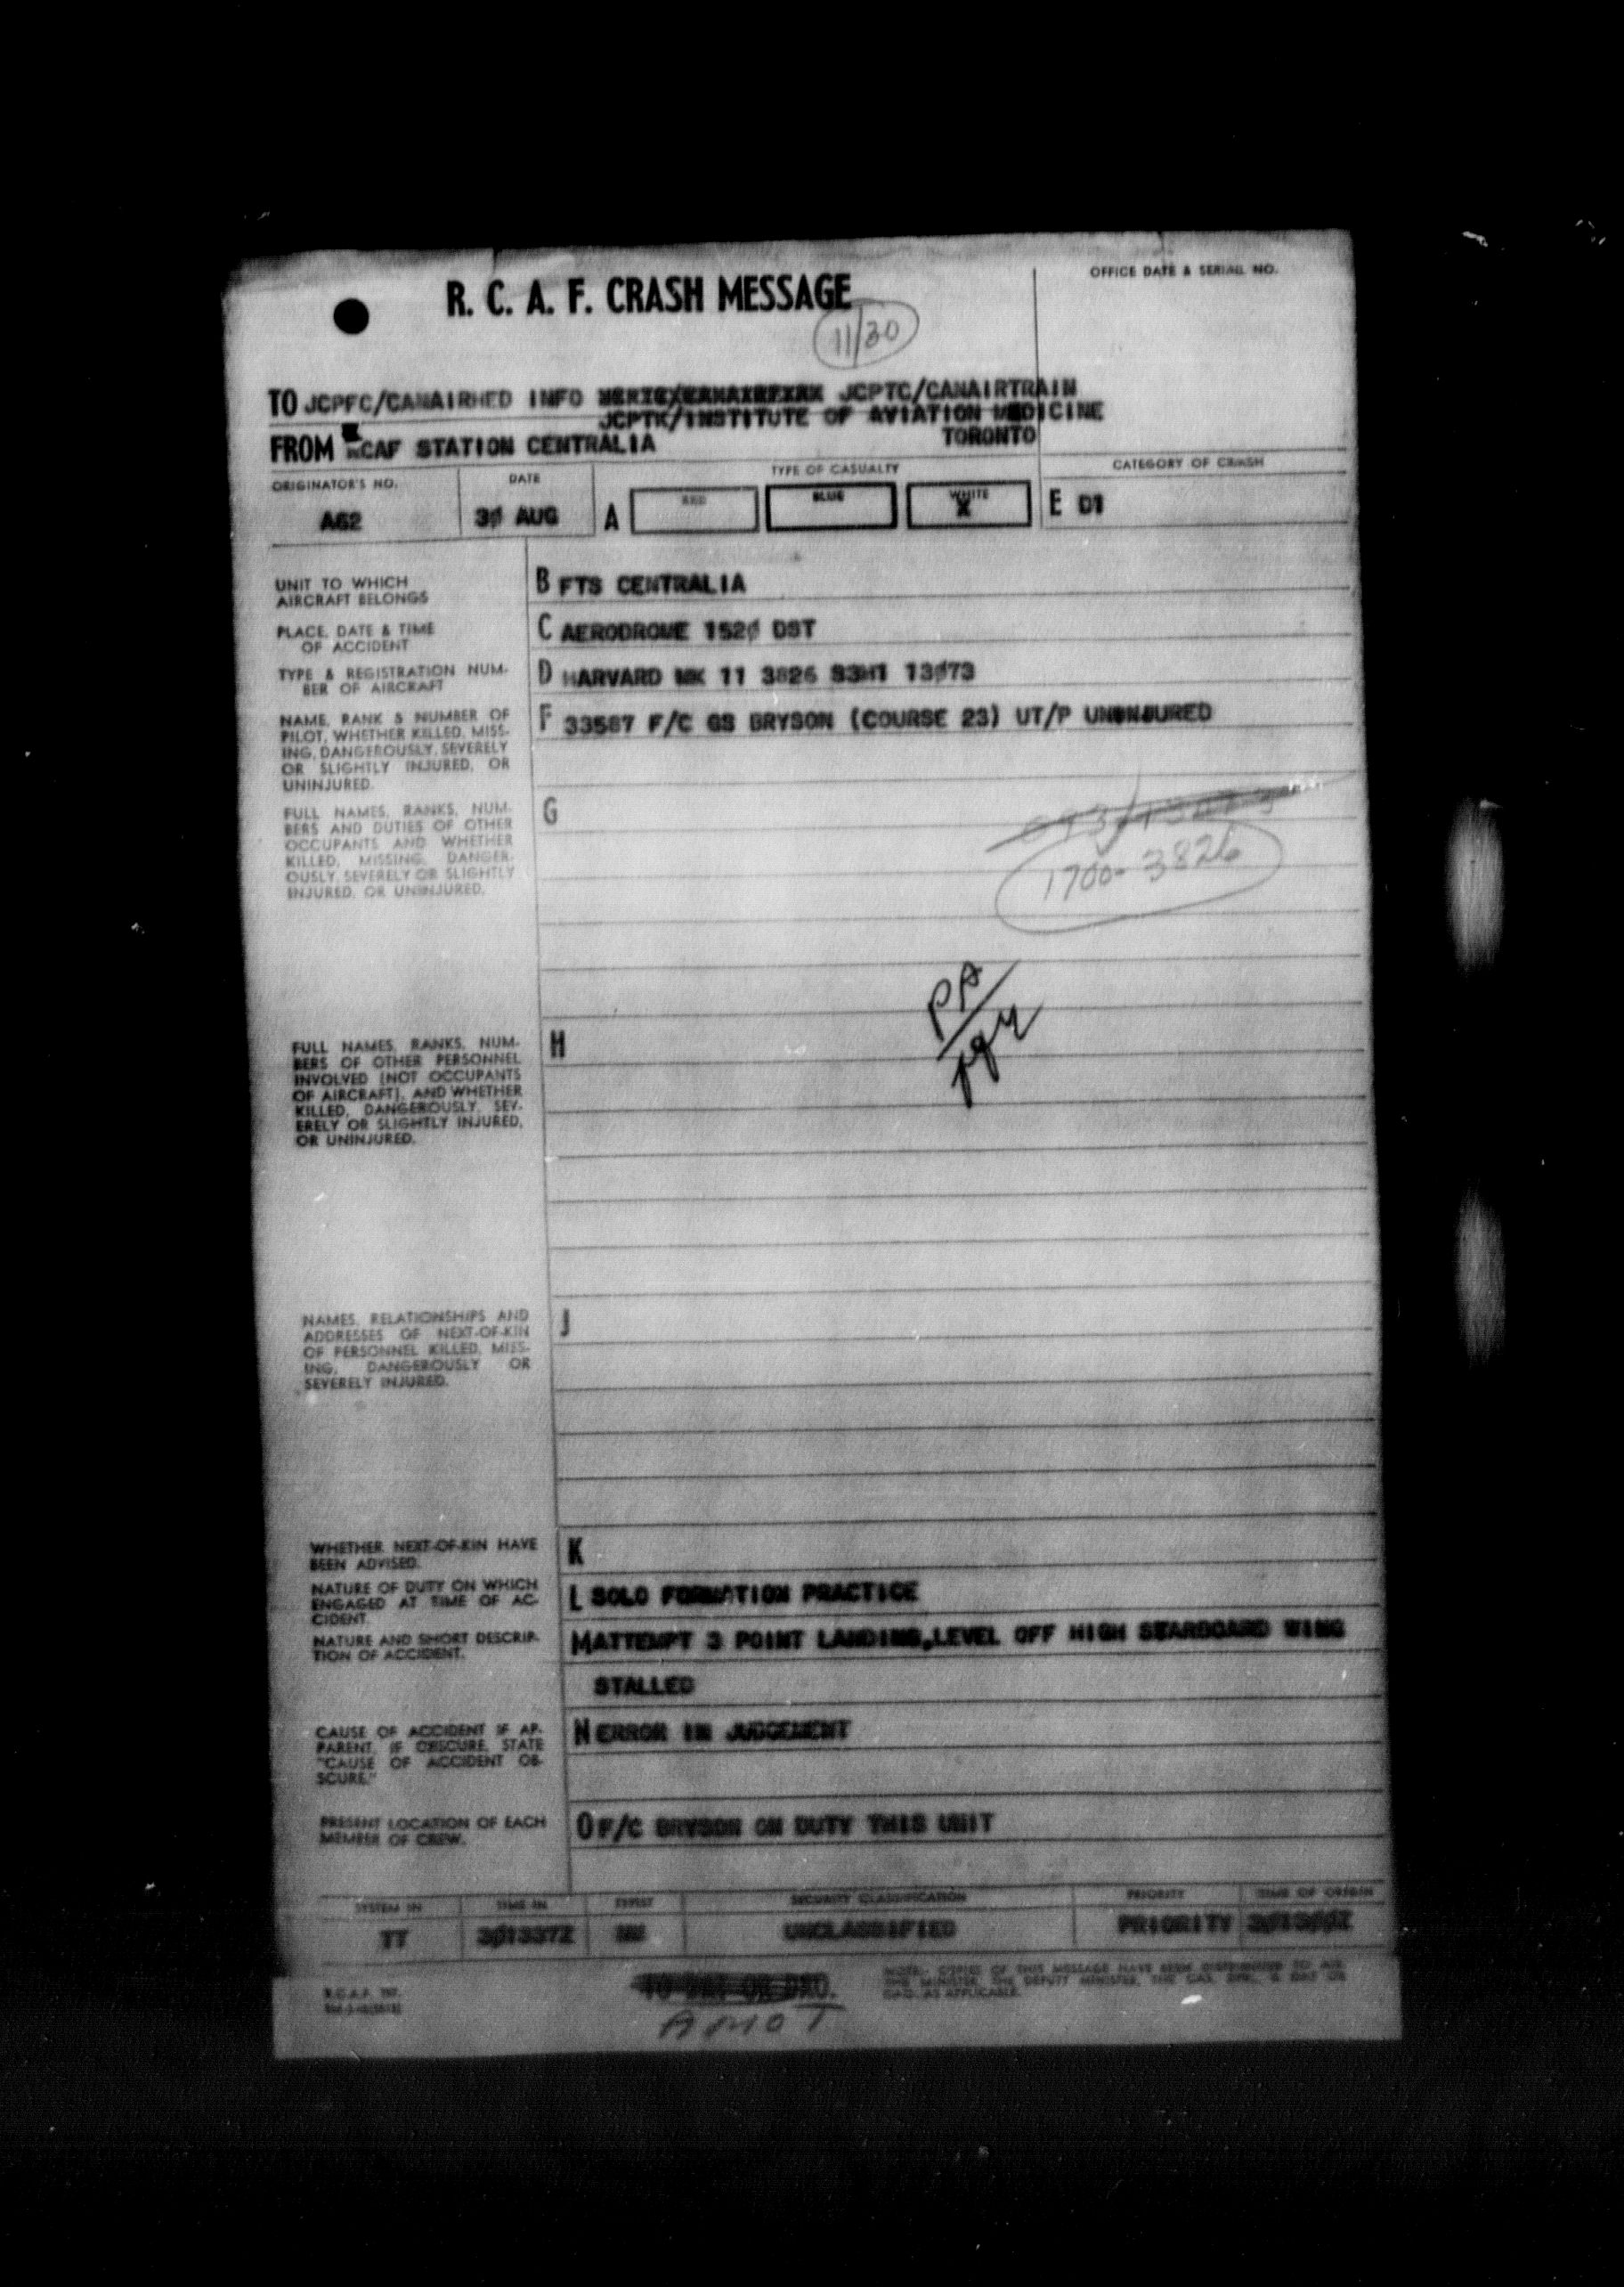 OFFICE DATE & SERIAL NO.
R. C. A. F. CRASH MESSAGE
11/30
TO JCPFC/CANAIRHED INFO JCPTC/CANAIRTRAIN
JCPTK/INSTITUTE OF AVIATION MEDICINE
FROM RCAF STATION CENTRALIA TORONTO
ORIGINATOR'S NO. DATE TYPE OF CASUALTY CATEGORY OF CRASH
A62 3Ø AUG A RED BLUE WHITE X E D1
UNIT TO WHICH
AIRCRAFT BELONGS
B FTS CENTRALIA
PLACE, DATE & TIME
OF ACCIDENT
C AERODROME 152Ø DST
TYPE & REGISTRATION NUM-
BER OF AIRCRAFT
D HARVARD MK 11 3826 S3H1 13Ø73
NAME, RANK & NUMBER OF
PILOT, WHETHER KILLED, MISS-
ING, DANGEROUSLY, SEVERELY
OR SLIGHTLY INJURED, OR
UNINJURED.
F 33587 F/C GS BRYSON (COURSE 23) UT/P UNINJURED
FULL NAMES, RANKS, NUM-
BERS AND DUTIES OF OTHER
OCCUPANTS AND WHETHER
KILLED, MISSING, DANGER-
OUSLY, SEVERELY OR SLIGHTLY
INJURED, OR UNINJURED.
G
1700-3826
PA
FULL NAMES, RANKS, NUM-
BERS OF OTHER PERSONNEL
INVOLVED (NOT OCCUPANTS
OF AIRCRAFT), AND WHETHER
KILLED, DANGEROUSLY, SEV-
ERELY OR SLIGHTLY INJURED,
OR UNINJURED.
H
NAMES, RELATIONSHIPS AND
ADDRESSES OF NEXT-OF-KIN
OF PERSONNEL KILLED, MISS-
ING, DANGEROUSLY OR
SEVERELY INJURED.
J
WHETHER NEXT-OF-KIN HAVE
BEEN ADVISED.
K
NATURE OF DUTY ON WHICH
ENGAGED AT TIME OF AC-
CIDENT.
L SOLO FORMATION PRACTICE
NATURE AND SHORT DESCRIP-
TION OF ACCIDENT.
M ATTEMPT 3 POINT LANDING, LEVEL OFF HIGH STARBOARD WING
STALLED
CAUSE OF ACCIDENT IF AP-
PARENT, IF OBSCURE, STATE
"CAUSE OF ACCIDENT OB-
SCURE."
N ERROR IN JUDGEMENT
PRESENT LOCATION OF EACH
MEMBER OF CREW.
O F/C BRYSON ON DUTY THIS UNIT
SYSTEM IN TIME IN TYPIST SECURITY CLASSIFICATION PRIORITY TIME OF ORIGIN
TT 3Ø1337Z UNCLASSIFIED PRIORITY
R.C.A.F.
NOTE: COPIES OF THIS MESSAGE HAVE BEEN DISTRIBUTED TO AIR
AS APPLICABLE.